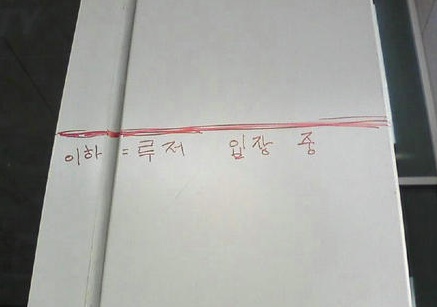 이하 = 루저 입장 중